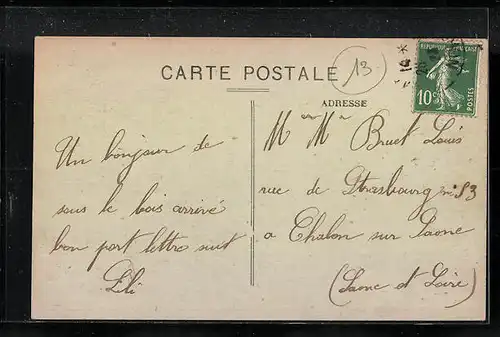 CARTE POSTALE
13
ADRESSE
RÉPUBLIQUE FRANÇAISE
10c
POSTES
Un bonjour de
sous le bois arrivé
bon port lettre suit
Lili
Mr Bruet Louis
rue de Strasbourg n: 53
a Chalon sur Saone
(Saone et Loire)